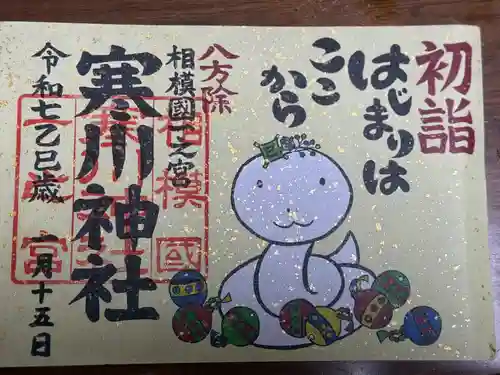 初詣
はじまりは
ここ
から
八方除
相模國一之宮
寒川神社
相模國
一宮
令和七乙巳歳
一月十五日